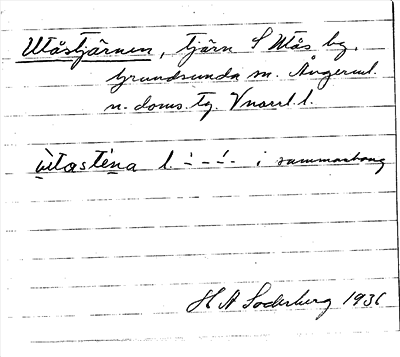 Utåstjärnen, tjärn S Utås by,
Grundsunda sn. Ångerml.
n. doms. tg. Vnorrl. l.
ùtosténa l. -́ - -́ - i sammanhang
H A Söderberg 1936